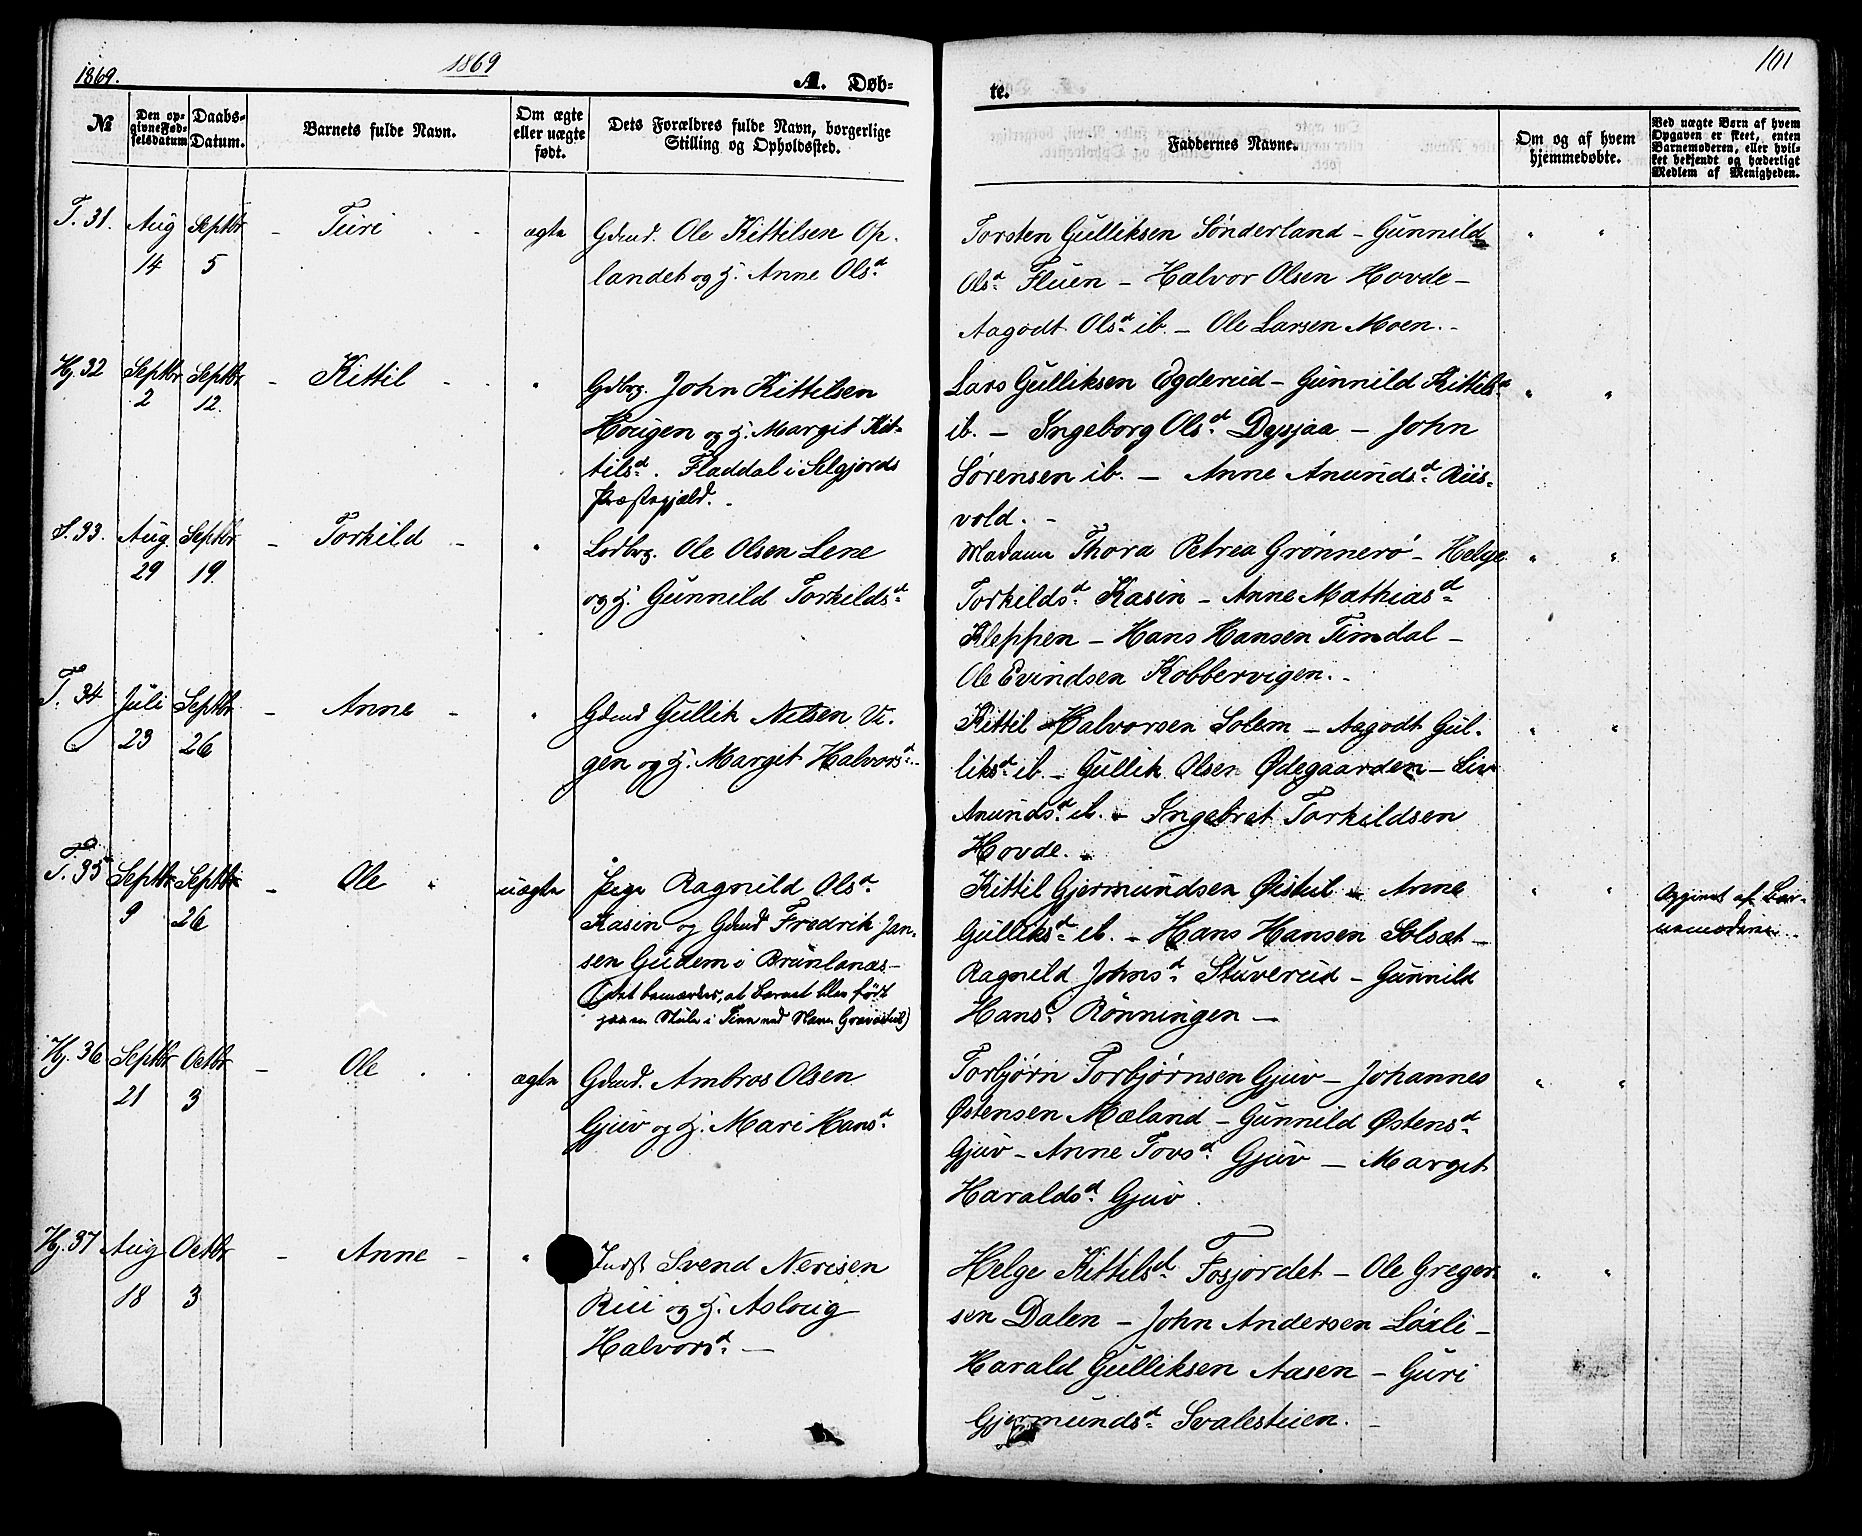 1869.
1869
A. Døb-
№
Den op-
givne Fød-
selsdatum
Daabs-
Datum.
Barnets fulde Navn.
Om ægte
eller uægte
født.
Dets Forældres fulde Navn, borgerlige
Stilling og Opholdssted.
T. 31.
Aug
14
Septbr
5
- Turi - -
ægte
Gdmd. Ole Kittilsen Op-
landet og H. Anne Olsd.
Hj. 32
Septbr
2
Septbr
12.
- Kittil - -
"
Gdbrg. John Kittilsen
Hougen og H. Margit Kit-
tilsd. Fladdal i Selgjords
Præstegjæld. -
33.
Aug.
29
Septbr
19.
- Torkild -
"
Lodbrg. Ole Olsen Lene
og H. Gunnild Torkildsd.
T. 34
Juli
23
Septbr
26
- Anne -
"
Gdmd Gullik Nilsen Vi-
gen og H. Margit Halvorsd. -
T. 35
Septbr
9
Septbr
26
- Ole "
uægte
Pige Ragnild Olsd.
Kasin og Gdmd Fredrik Jan-
sen Gudem i Brunlanæs -
(det bemærkes, at Barnet blev født
paa en Støle i Tinn ved Navn
Hj. 36
Septbr
21
Octbr
3
- Ole - -
ægte
Gdmd. Ambros Olsen
Gjuv og H. Mari Hansd.
Hj. 37
Aug
18
Octbr
3
- Anne -
"
Indst Svend Nerisen
Rui og H. Asloug
Halvorsd. -
101
te.
Faddernes Navne.
Om og af hvem
hjemmedøbte.
Ved uægte Børn af hvem
Opgaven er skeet, enten
Barnemoderen, eller hvil-
ket bekjendt og hæderligt
Medlem af Menigheden.
Torsten Gulliksen Sønderland - Gunnild
Olsd. Fluen - Halvor Olsen Hovde -
Aagodt Olsd. ib. - Ole Larsen Moen. -
" "
Lars Gulliksen Egderud - Gunnild Kittilsd.
ib. - Ingeborg Olsd. Dysjaa - John
Sørensen ib. - Anne Anundsd. Riis-
vold. -
" "
Madame Thora Petrea Grønnerø - Helge
Torkildsd. Kasin - Anne Mathiasd.
Kleppen - Hans Hansen Timdal -
Ole Evindsen Kobbervigen. -
" "
Kittil Halvorsen Solem - Aagodt Gul-
liksd. ib. - Gullik Olsen Ødegaarden - Liv
Anundsd. ib. - Ingebret Torkildsen
Hovde. -
" "
Kittil Gjermundsen Øistul - Anne
Gulliksd. ib. - Hans Hansen Solsæt -
Ragnild Johnsd. Stuverud - Gunnild
Hansd. Rönningen -
" "
Opgivet af Bar-
nemoderen. -
Torbjørn Torbjørnsen Gjuv - Johannes
Østensen Mæland - Gunnild Østensd.
Gjuv - Anne Tovsd. Gjuv - Margit
Haraldsd. Gjuv.
" "
Helge Kittilsd. Fosjordet - Ole Greger-
sen Dalen - John Andersen
Harald Gulliksen Aasen - Guri
Gjermundsd. -
" "